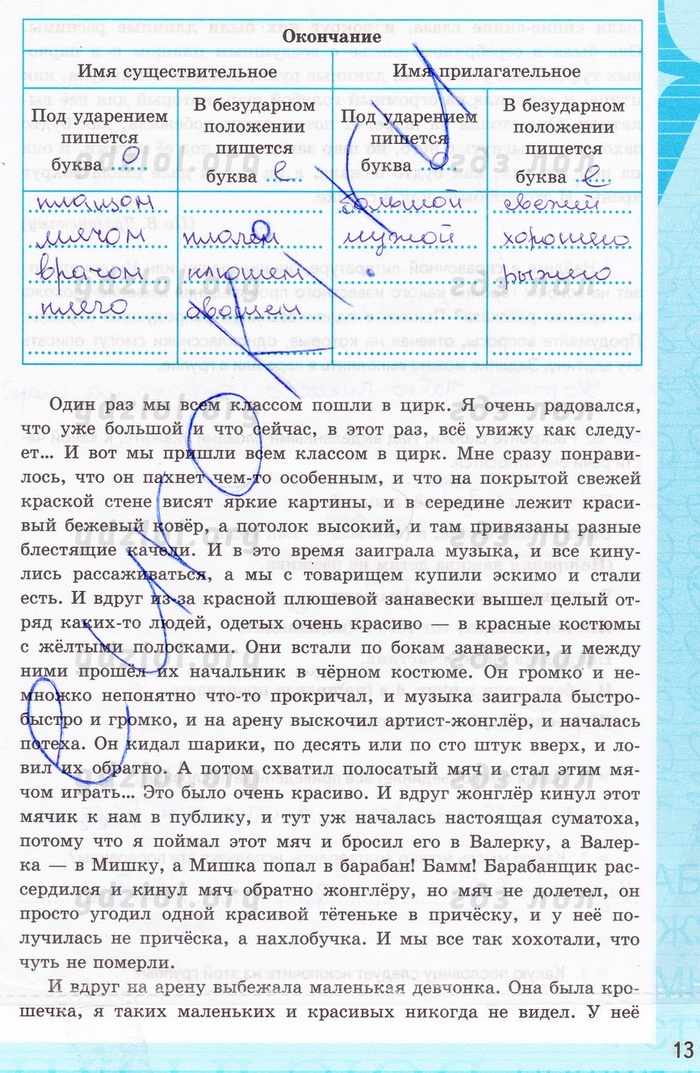 Окончание
Имя существительное
Имя прилагательное
Под ударением
пишется
буква о
В безударном
положении
пишется
буква е
Под ударением
пишется
буква о
В безударном
положении
пишется
буква е
плащом
большой
свежей
мячом
плачем
чужой
хорошего
врачом
плющем
рыжего
плечо
овощем
gdzlol.org
гдз лол
Один раз мы всем классом пошли в цирк. Я очень радовался,
что уже большой и что сейчас, в этот раз, всё увижу как следу-
ет... И вот мы пришли всем классом в цирк. Мне сразу понрави-
лось, что он пахнет чем-то особенным, и что на покрытой свежей
краской стене висят яркие картины, и в середине лежит краси-
вый бежевый ковёр, а потолок высокий, и там привязаны разные
блестящие качели. И в это время заиграла музыка, и все кину-
лись рассаживаться, а мы с товарищем купили эскимо и стали
есть. И вдруг из-за красной плюшевой занавески вышел целый от-
ряд каких-то людей, одетых очень красиво — в красные костюмы
с жёлтыми полосками. Они встали по бокам занавески, и между
ними прошёл их начальник в чёрном костюме. Он громко и не-
множко непонятно что-то прокричал, и музыка заиграла быстро-
быстро и громко, и на арену выскочил артист-жонглёр, и началась
потеха. Он кидал шарики, по десять или по сто штук вверх, и ло-
вил их обратно. А потом схватил полосатый мяч и стал этим мя-
чом играть... Это было очень красиво. И вдруг жонглёр кинул этот
мячик к нам в публику, и тут уж началась настоящая суматоха,
потому что я поймал этот мяч и бросил его в Валерку, а Валер-
ка — в Мишку, а Мишка попал в барабан! Бамм! Барабанщик рас-
сердился и кинул мяч обратно жонглёру, но мяч не долетел, он
просто угодил одной красивой тётеньке в причёску, и у неё по-
лучилась не причёска, а нахлобучка. И мы все так хохотали, что
чуть не померли.
И вдруг на арену выбежала маленькая девчонка. Она была кро-
шечка, я таких маленьких и красивых никогда не видел. У неё
13